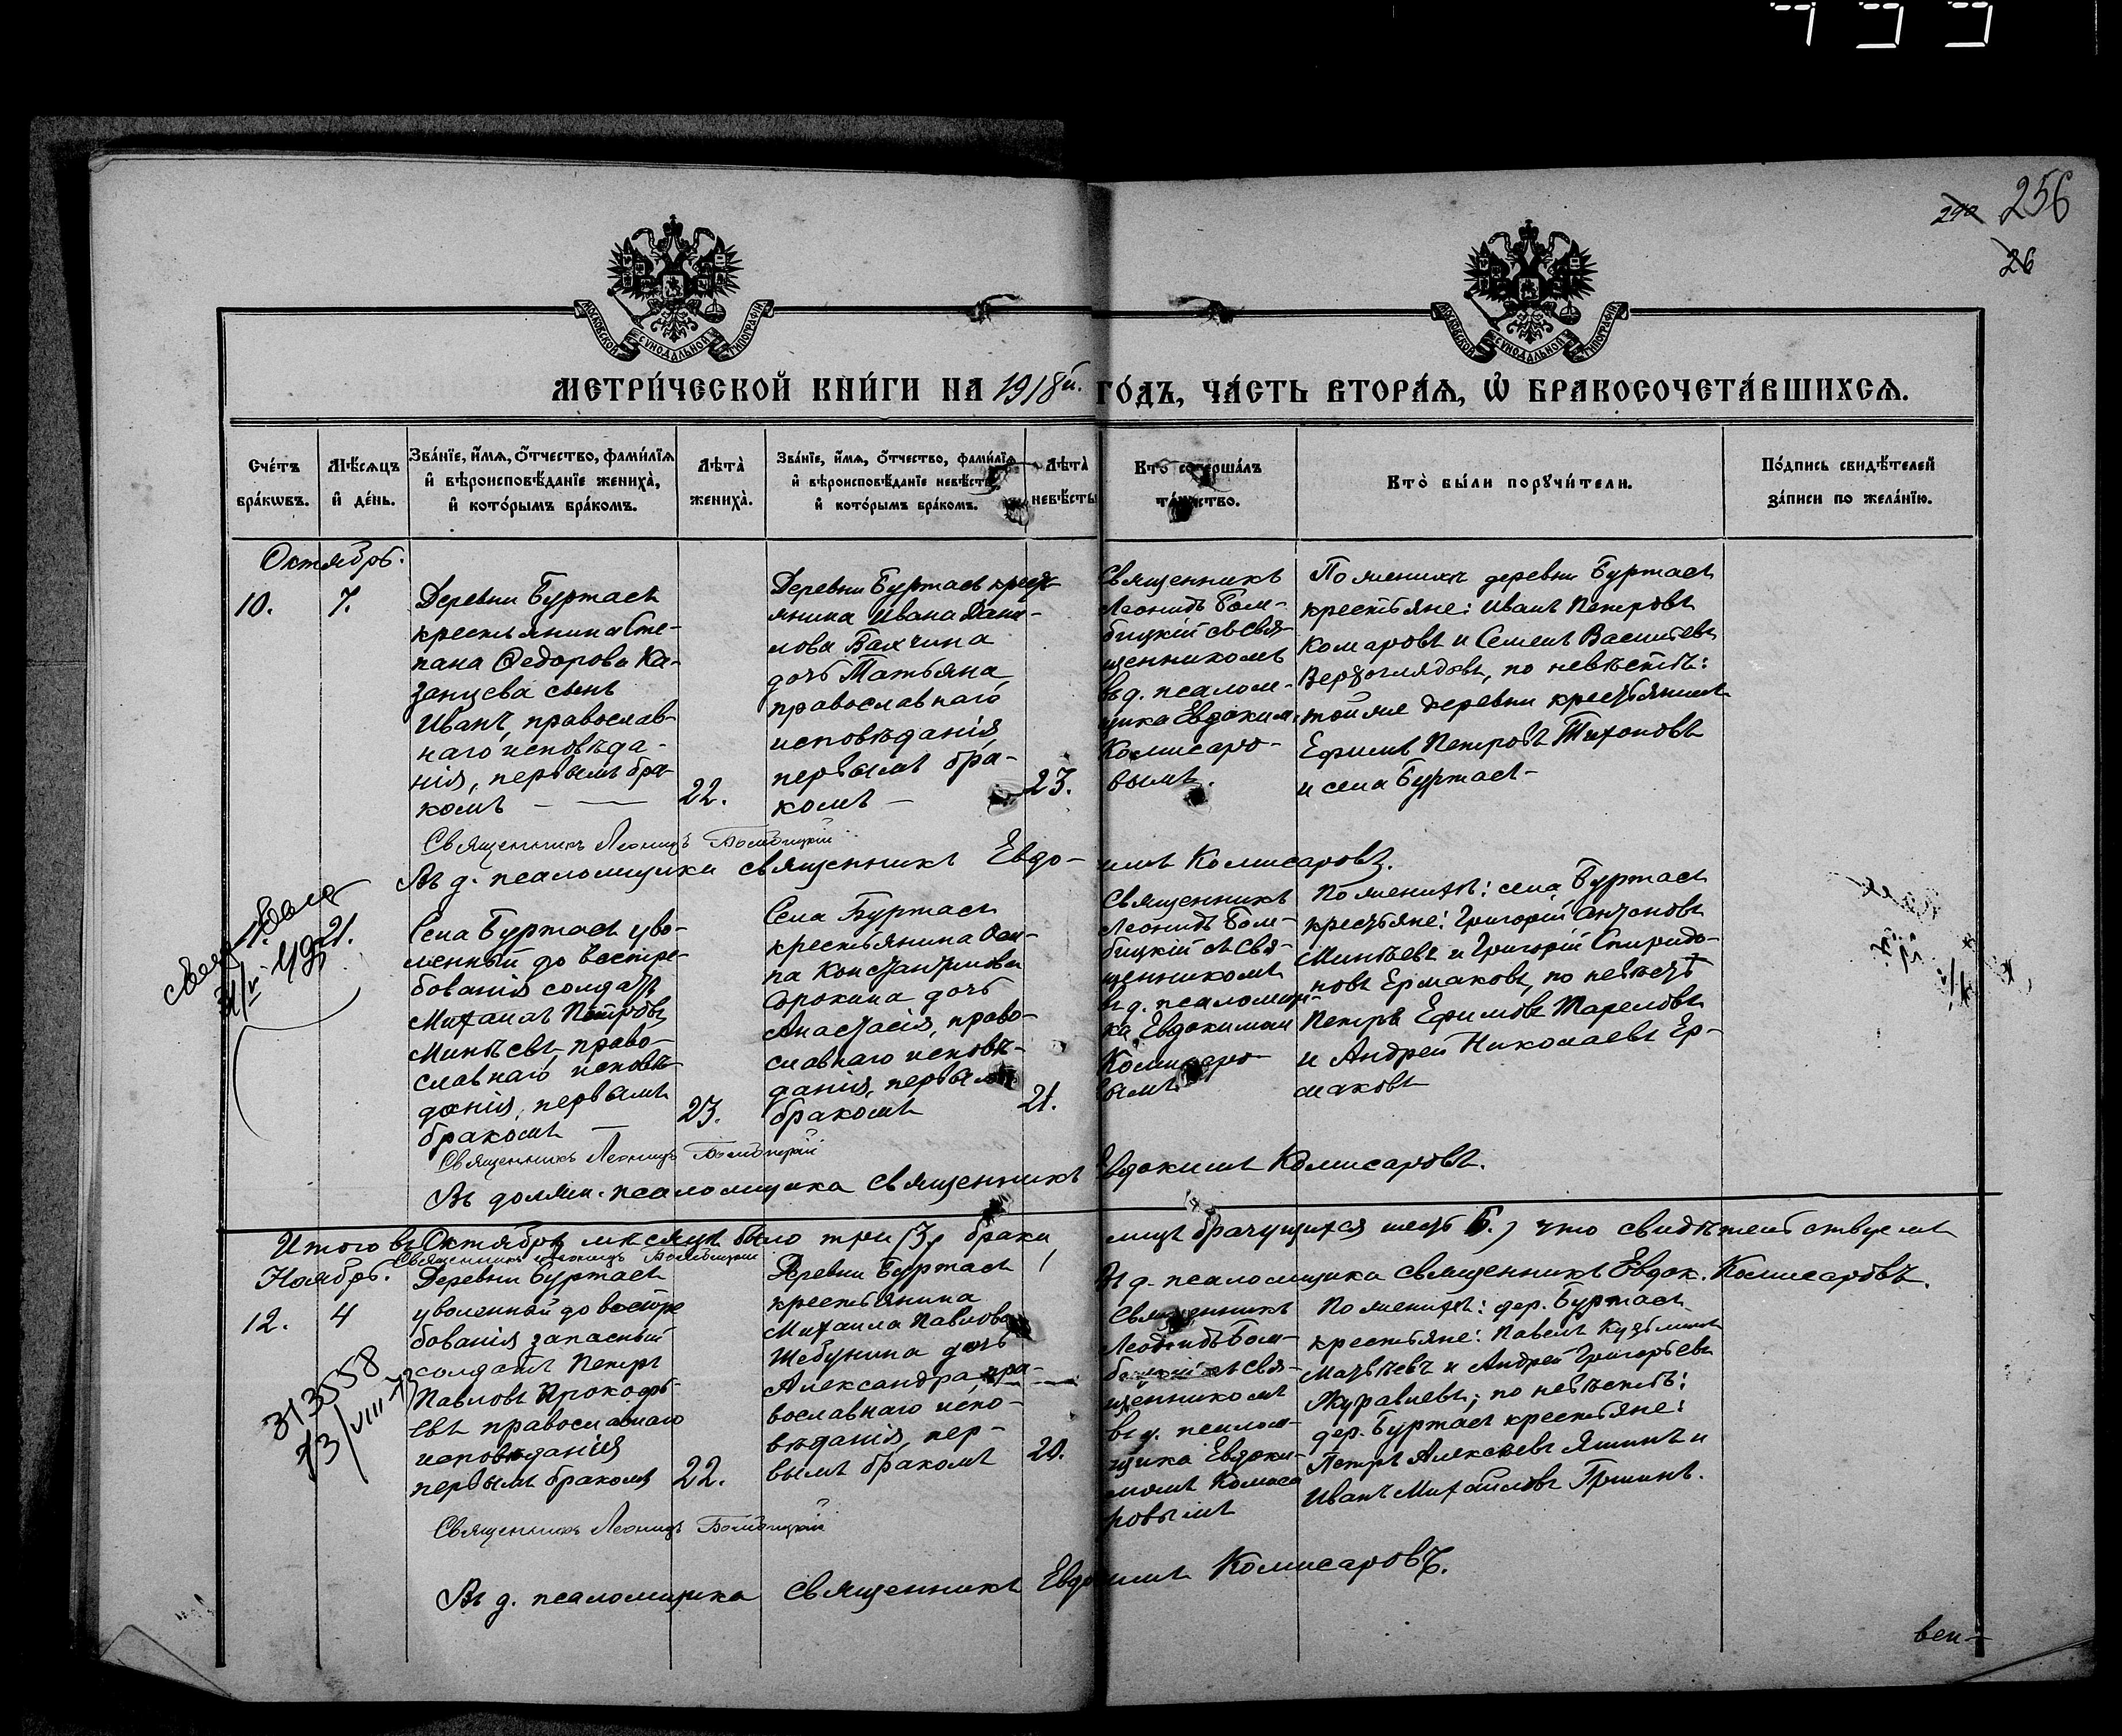 256
26
МОСКОВСКОЙ СѴНОДАЛЬНОЙ ТИПОГРАФІИ
МОСКОВСКОЙ СѴНОДАЛЬНОЙ ТИПОГРАФІИ
МЕТРИ́ЧЕСКОЙ КНИ́ГИ НА 1918й. ГО́ДЪ, ЧА́СТЬ ВТОРА́Ѧ, Ѡ҆ БРАКОСОЧЕТА́ВШИХСѦ.
Сче́тъ бра́кѡвъ.
Мѣ́сѧцъ и҆ де́нь.
Зва́нїе, и҆́мѧ, ѻ҆́тчество, фами́лїѧ и҆ вѣроисповѣ́данїе жениха̀, и҆ кото́рымъ бра́комъ.
Лѣта̀ жениха̀.
Зва́нїе, и҆́мѧ, ѻ҆́тчество, фами́лїѧ и҆ вѣроисповѣ́данїе невѣ́сты, и҆ кото́рымъ бра́комъ.
Лѣта̀ невѣ́сты
Кто̀ соверша́лъ та́инство.
Кто̀ бы́ли порꙋчи́тели.
По́дпись свидѣ́телей за́писи по жела́нїю.
Октябрь.
10.
7.
Деревни Буртасъ
крестьянина Сте-
пана Ѳедорова Ка-
занцева сынъ
Иванъ, православ-
наго исповѣда-
нія, первымъ бра-
комъ —
22.
Деревни Буртасъ крест-
янина Ивана Дани-
лова Бахчина
дочь Татьяна,
православнаго
исповѣданія,
первымъ бра-
комъ —
23.
Священникъ
Леонидъ Бом-
бицкій съ свя-
щенникомъ
въ д. псалом-
щика Евдоким.
Комисаро-
вымъ.
По женихѣ деревни Буртасъ
крестьяне: Иванъ Петровъ
Комаровъ и Семенъ Васильевъ
Верхоглядовъ, по невѣстѣ:
той же деревни крестьянинъ
Ефимъ Петровъ Тихоновъ
и села Буртасъ —
Священникъ Леонидъ Бомбицкій
Въ д. псаломщика священникъ Евдо-
кимъ Комисаровъ.
21.
Села Буртасъ уво-
ленный до востре-
бованія солдатъ
Михаилъ Петровъ
Минѣевъ, право-
славнаго исповѣ-
данія, первымъ
бракомъ —
23.
Села Буртасъ
крестьянина Оси-
па Константинова
Сорокина дочь
Анастасія, право-
славнаго исповѣ-
данія, первымъ
бракомъ
21.
Священникъ
Леонидъ Бом-
бицкій съ свя-
щенникомъ
въ д. псаломщи-
ка Евдокимом
Комисаро-
вымъ
По женихѣ: села Буртасъ
крестьяне: Григорій Антоновъ
Минѣевъ и Григорій Спиридо-
новъ Ермаковъ, по невѣстѣ
Петръ Ефимовъ Тареловъ
и Андрей Николаевъ Ер-
маковъ
Священникъ Леонидъ Бомбицкій
Въ должн. псаломщика священникъ
Евдокимъ Комисаровъ.
Итого въ Октябрѣ мѣсяцѣ было три /3/ брака,
лицъ брачущихся шесть 6.) что свидѣтельствуемъ
Священникъ Леонидъ Бомбицкій
Въ д. псаломщика священникъ Евдок. Комисаровъ.
Ноябрь.
12.
4
Деревни Буртасъ
уволенный до востре
бованія запасный
солдатъ Петръ
Павловъ Прокофь-
евъ православнаго
исповѣданія
первымъ бракомъ
22.
Деревни Буртасъ
крестьянина
Михаила Павлова
Шебунина дочь
Александра, пра-
вославнаго испо-
вѣданія, пер-
вымъ бракомъ
20.
Священникъ
Леонидъ Бом-
бицкій съ свя-
щенникомъ
въ д. псалом-
щика Евдоки-
момъ Комиса
ровымъ
По женихѣ: дер. Буртасъ
крестьяне: Павелъ Кузьминъ
Матвѣевъ и Андрей Григорьевъ
Журавлевъ; по невѣстѣ:
дер. Буртасъ крестьяне:
Петръ Алексѣевъ Яшинъ и
Иванъ Михайловъ Гришинъ.
313558
13/VIII-73
Священникъ Леонидъ Бомбицкій
Въ д. псаломщика священникъ Евдокимъ Комисаровъ.